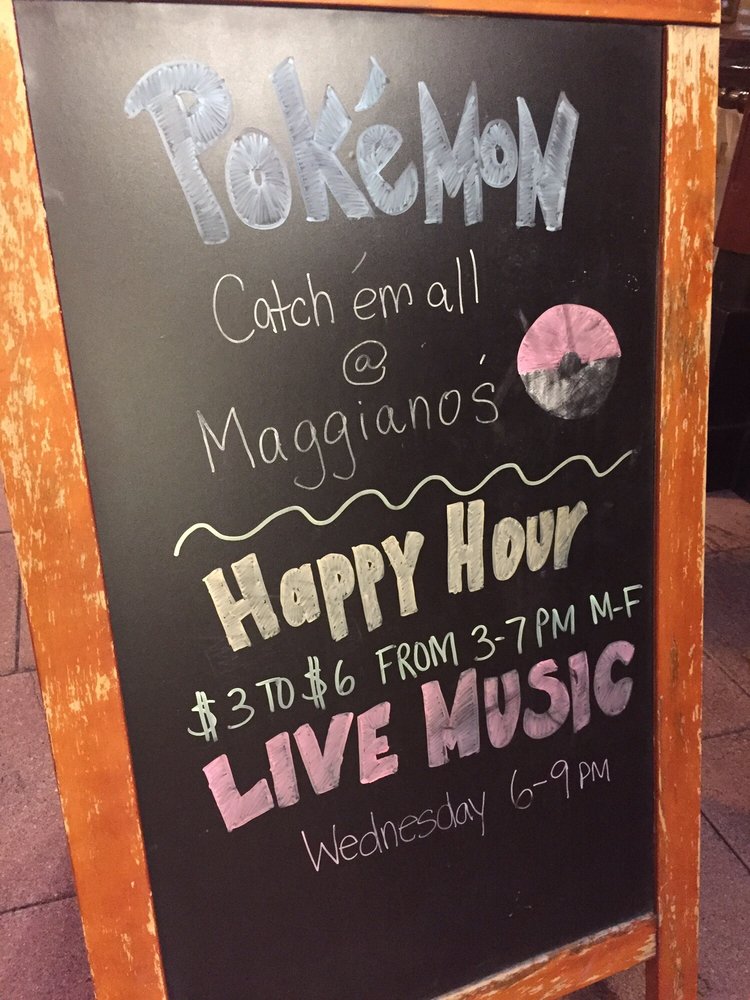 PokéMoN
Catch ém all
@
Maggiano's
Happy Hour
$3 TO $6 FROM 3-7PM M-F
LIVE MUSIC
Wednesday 6-9PM